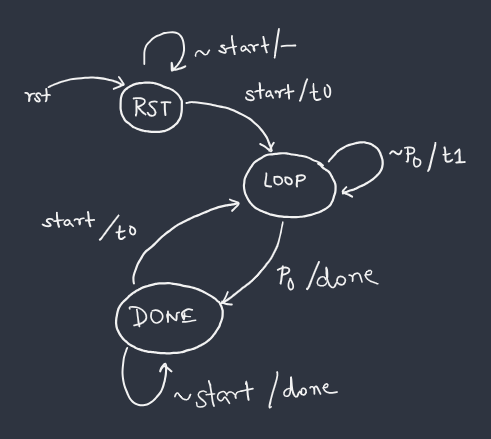 ~ start/–
rst
RST
start/t0
LOOP
~P₀/t1
start/t0
P₀/done
DONE
~start/done